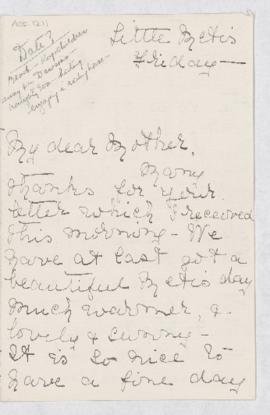 Acc. 1211
Date?
Little Metis
Friday—
My dear Mother,
Many
thanks for your
letter which I received
this morning - We
have at last got a
beautiful Metis day
much warmer, &
lovely & sunny -
It is so nice to
have a fine day